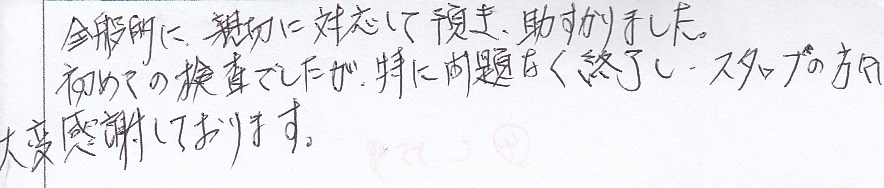 全般的に、親切に対応して頂き、助すかりました。
初めての検査でしたが、特に問題なく終了し、スタッフの方々
大変感謝しております。